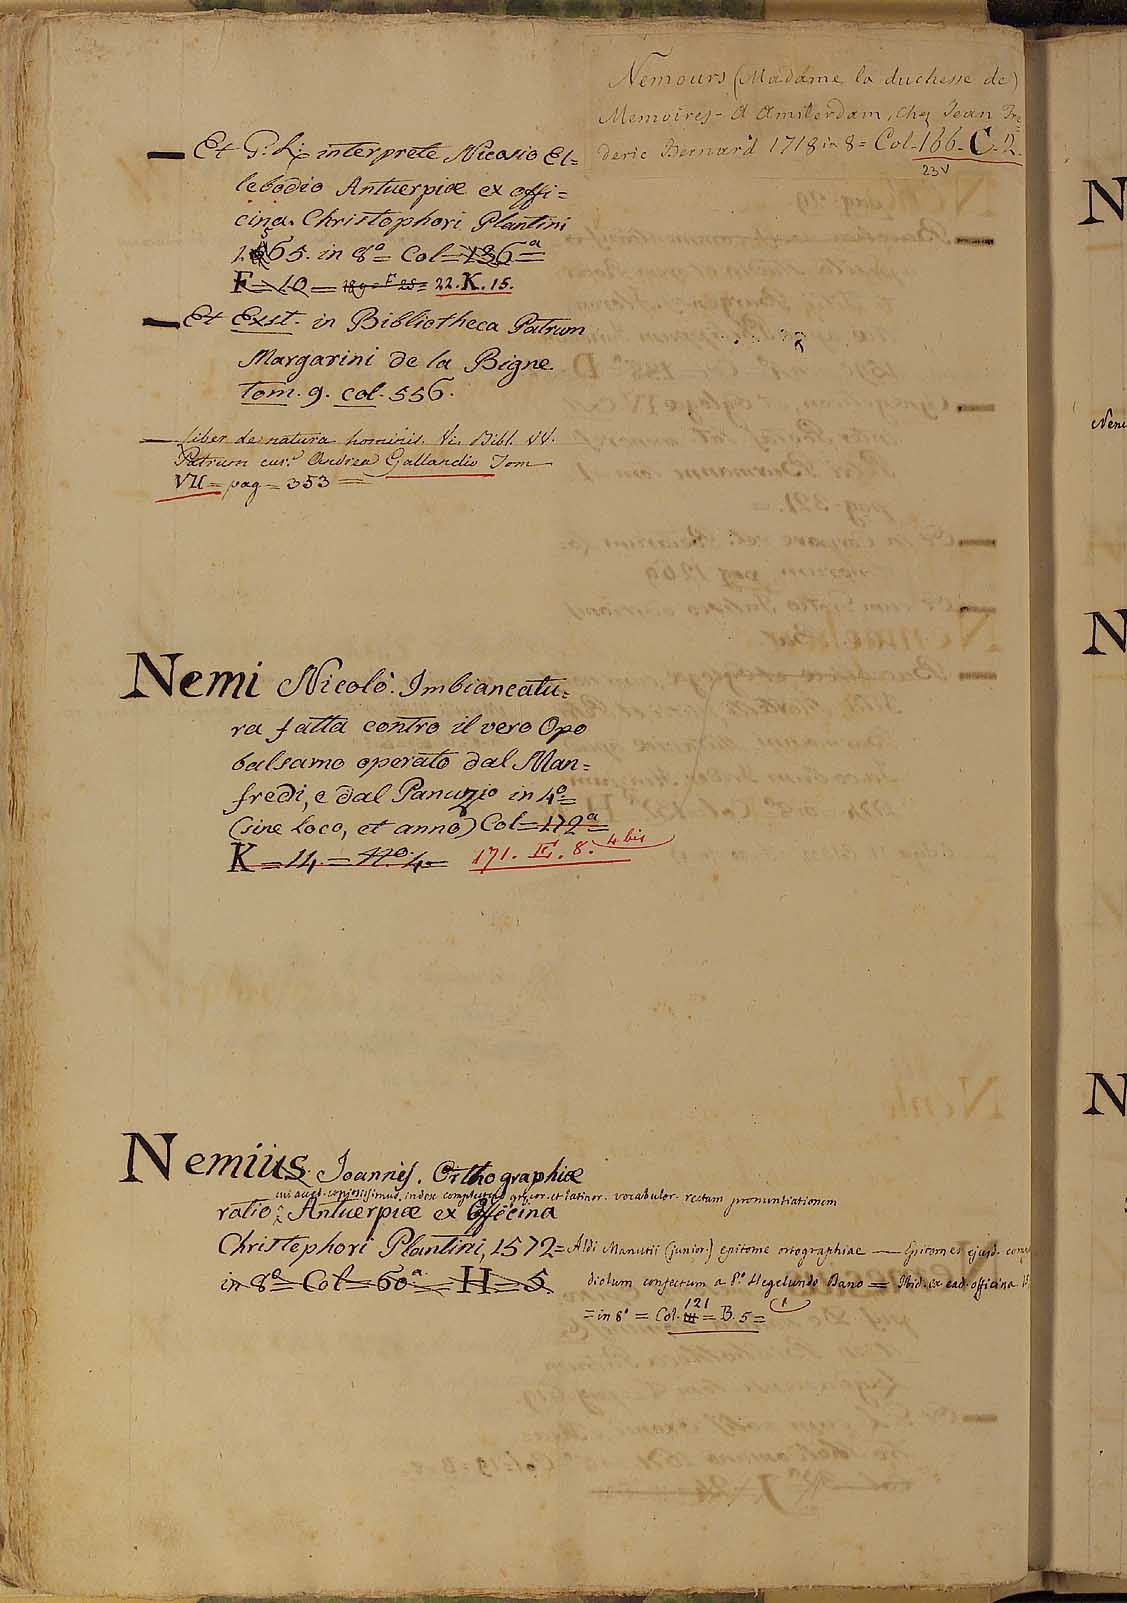 Nemours (Madame la duchesse de)
Memoires - A Amsterdam, chez Jean Fre=
deric Bernard 1718 in 8 = Col - 166 - C. 2.
23v
— Et G. L. interprete Nicasio El=
lebodio Antuerpiæ ex offi=
cina Christophori Plantini
1565. in 8º = Col = 136ª =
F = 10 = 189 = F 25 = 22. K. 15.
— Et Exst. in Bibliotheca Patrum
Margarini de la Bigne.
tom. 9. col. 556.
— Liber de natura hominis. Bibl. VV.
Patrum cur. Andrea Gallandio Tom
VII = pag = 353 =
Nemi Nicolò. Imbiancatu=
ra fatta contro il vero Opo
balsamo operato dal Man=
fredi, e dal Panuzio in 4º =
(sine loco, et anno) Col = 172ª =
K = 14 = Nº. 4 = 171. E. 8. 4 bis
Nemius Joannis. Orthographiæ
cui aucd. copiosissimus index complectens græcor. et latinor. vocabulor. rectam pronuntiationem
ratio : Antuerpiæ ex Officina
Christophori Plantini, 1572 = Aldi Manutii (junior.) epitome ortographiae — Epitomes ejusd.
in 8º = Col = 60ª = H = 5 diolum confectum a P.º Hegelundo Dano = Ibid. ex ead. officina
= in 8º = Col. 121 = B. 5 = 1
N
Nem
N
N